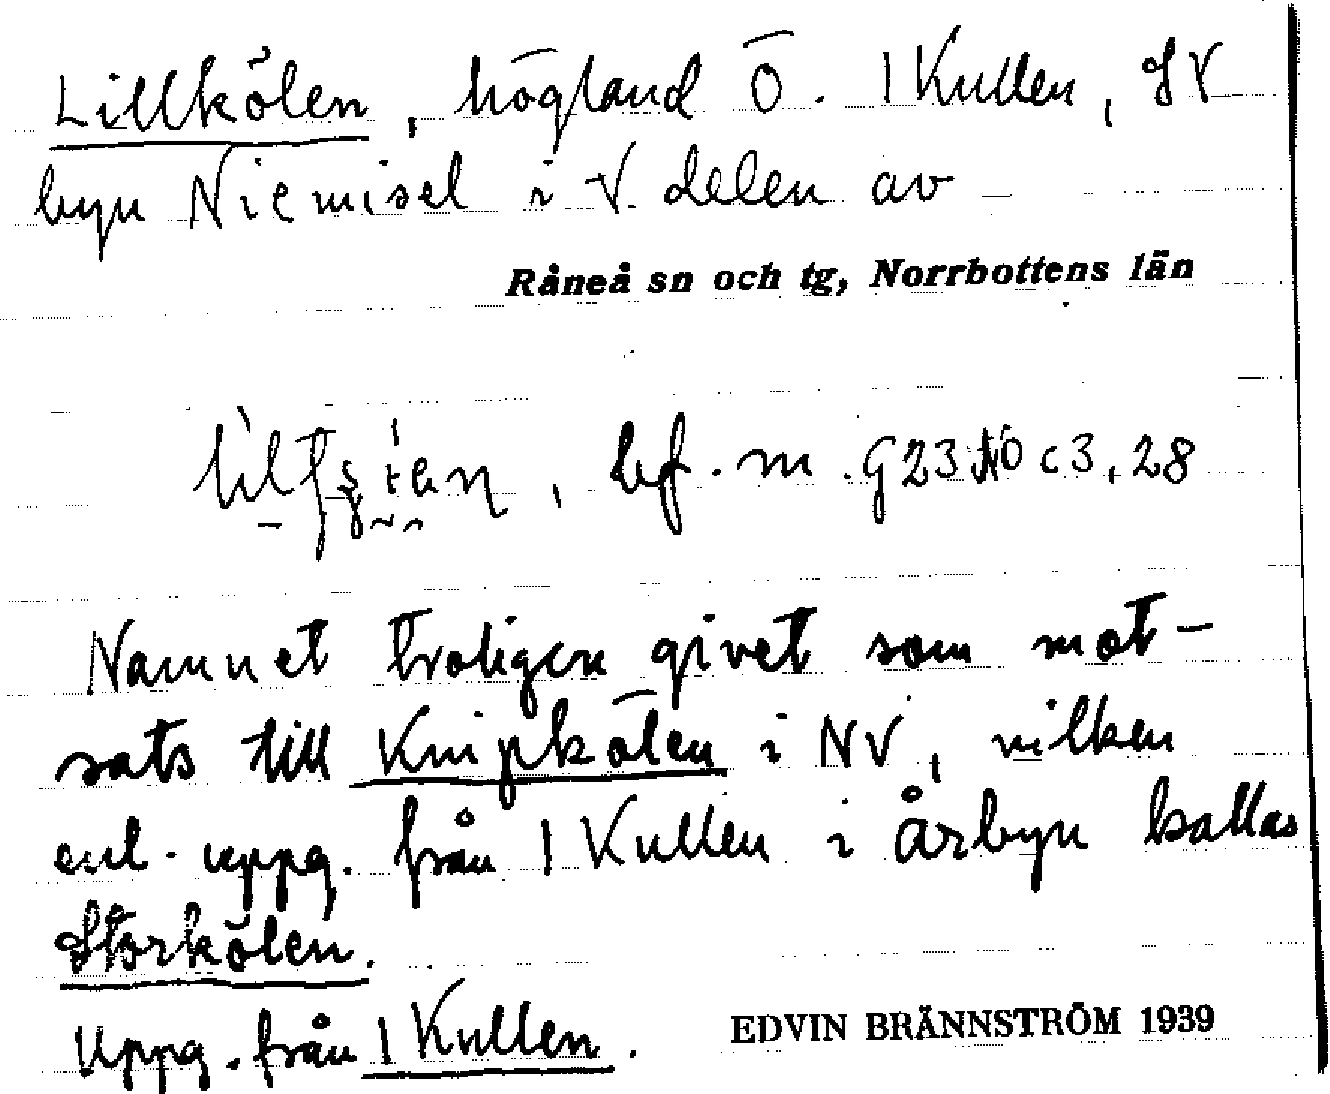 Lillkölen, högland Ö. 1 Kullen, SV
byn Niemisel i V delen av
Råneå sn och tg, Norrbottens län
bf. m. G23 NO c 3, 28
Namnet troligen givet som mot-
sats till Knipkölen i NV, vilken
enl. uppg. från 1 Kullen i Årbyn kallas
Storkölen.
Uppg. från 1 Kullen. EDVIN BRÄNNSTRÖM 1939